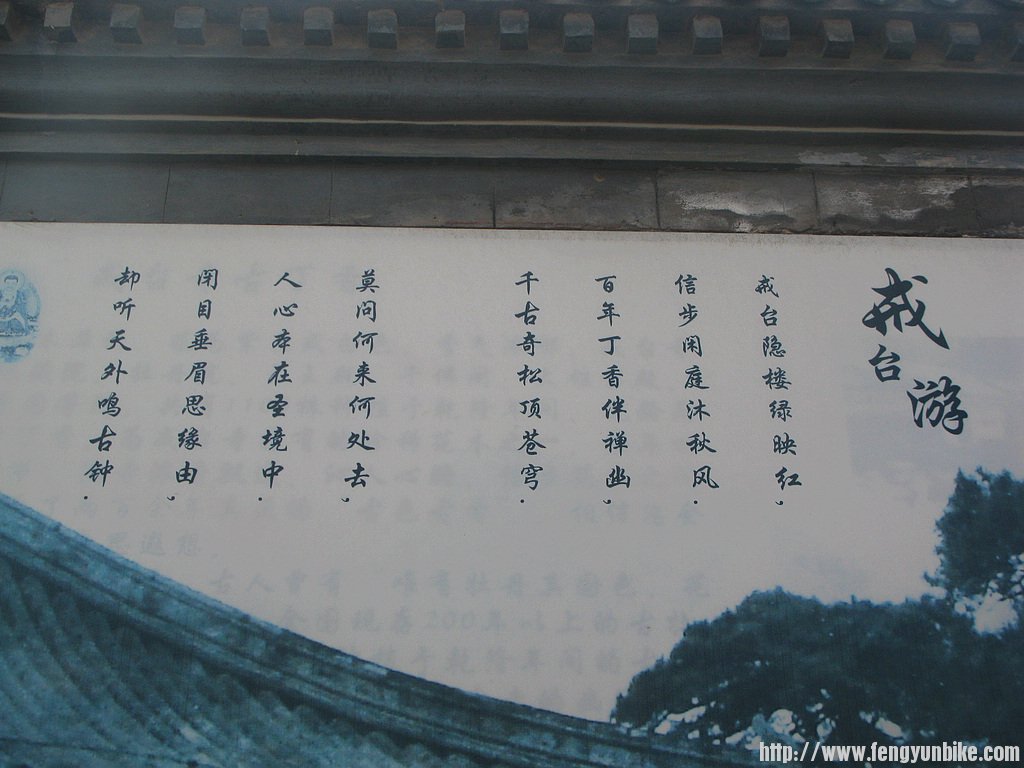 戒台游
戒台隐楼绿映红，
信步闲庭沐秋风．
百年丁香伴禅幽，
千古奇松顶苍穹．
莫问何来何处去，
人心本在圣境中．
闭目垂眉思缘由，
却听天外鸣古钟．
http://www.fengyunbike.com